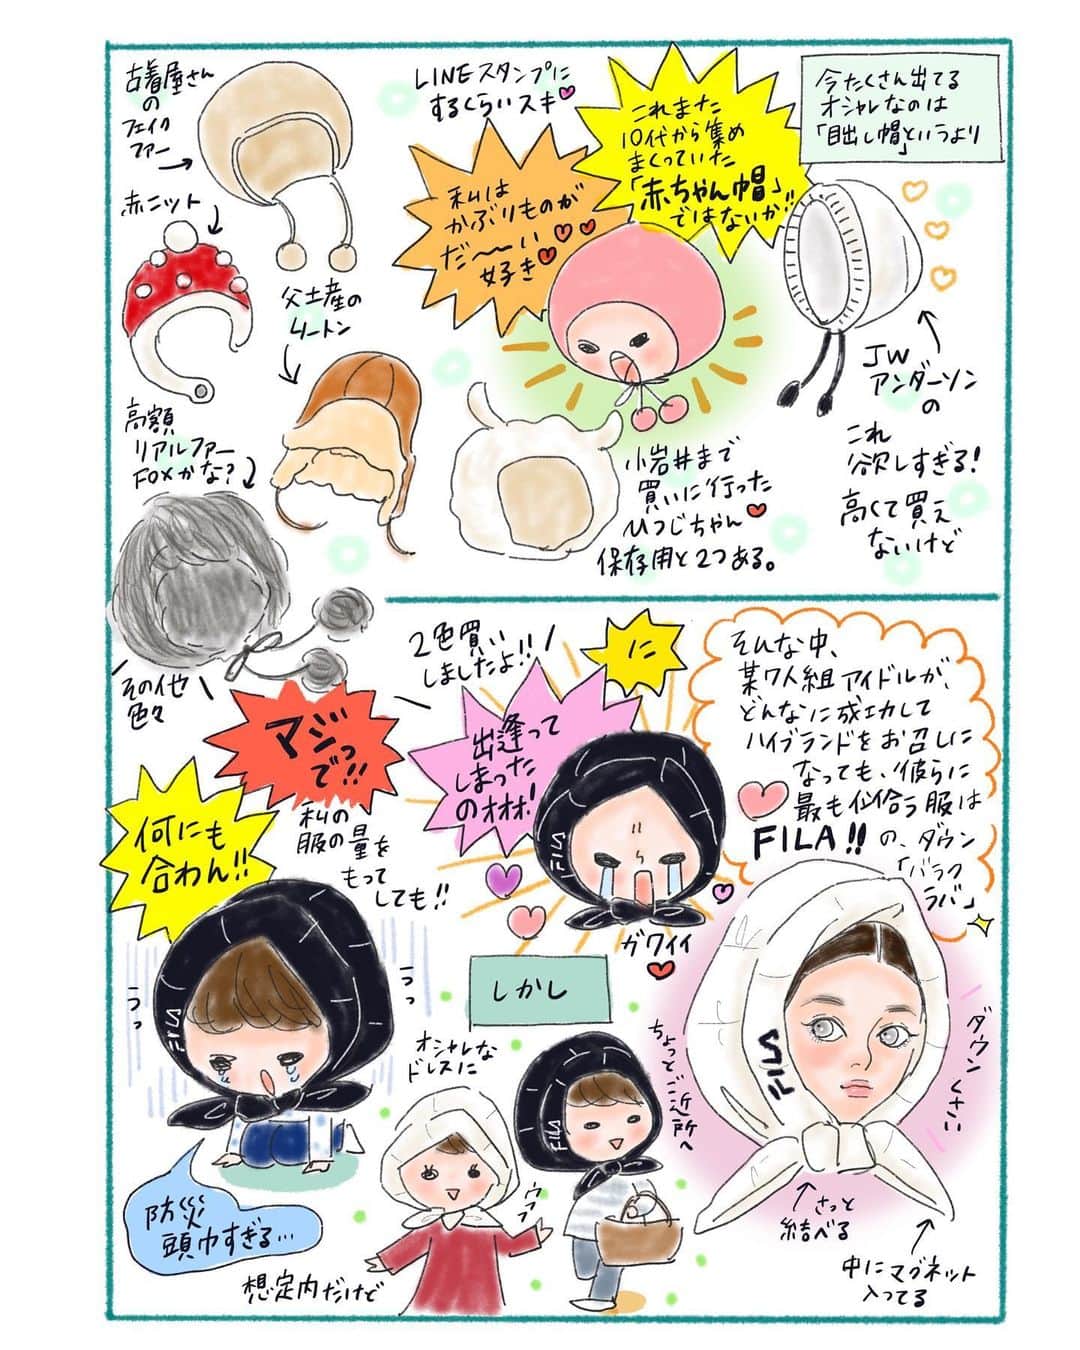 今たくさん出てる
オシャレなのは
「目出し帽」というより
これまた
10代から集め
まくっていた
「赤ちゃん帽」
ではないか!!
LINEスタンプに
するくらいスキ
私は
かぶりものが
だ〜〜い
好き
JW
アンダーソン
の
これ
欲しすぎる!
高くて買え
ないけど
古着屋さん
の
フェイク
ファー
赤ニット
父土産の
ムートン
高額
リアルファー
FOXかな?
小岩井まで
買いに行った
ひつじちゃん
保存用と2つある。
その他
色々
そんな中、
某7人組アイドルが、
どんなに成功して
ハイブランドをお召しに
なっても、彼らに
最も似合う服は
FILA!!の、ダウン
「バラク
ラバ」
に
出逢って
しまった
のオオオ!
2色買い
しましたよ!!
FILA
ガワイイ
FILA
ダウンくさい
さっと
結べる
中にマグネット
入ってる
マジっ
で!!
何にも
合わん!!
私の
服の量を
もって
しても!!
うっ
うっ
FILA
防災
頭巾すぎる…
しかし
オシャレな
ドレスに
ちょっとご近所へ
FILA
ウフフ
想定内だけど